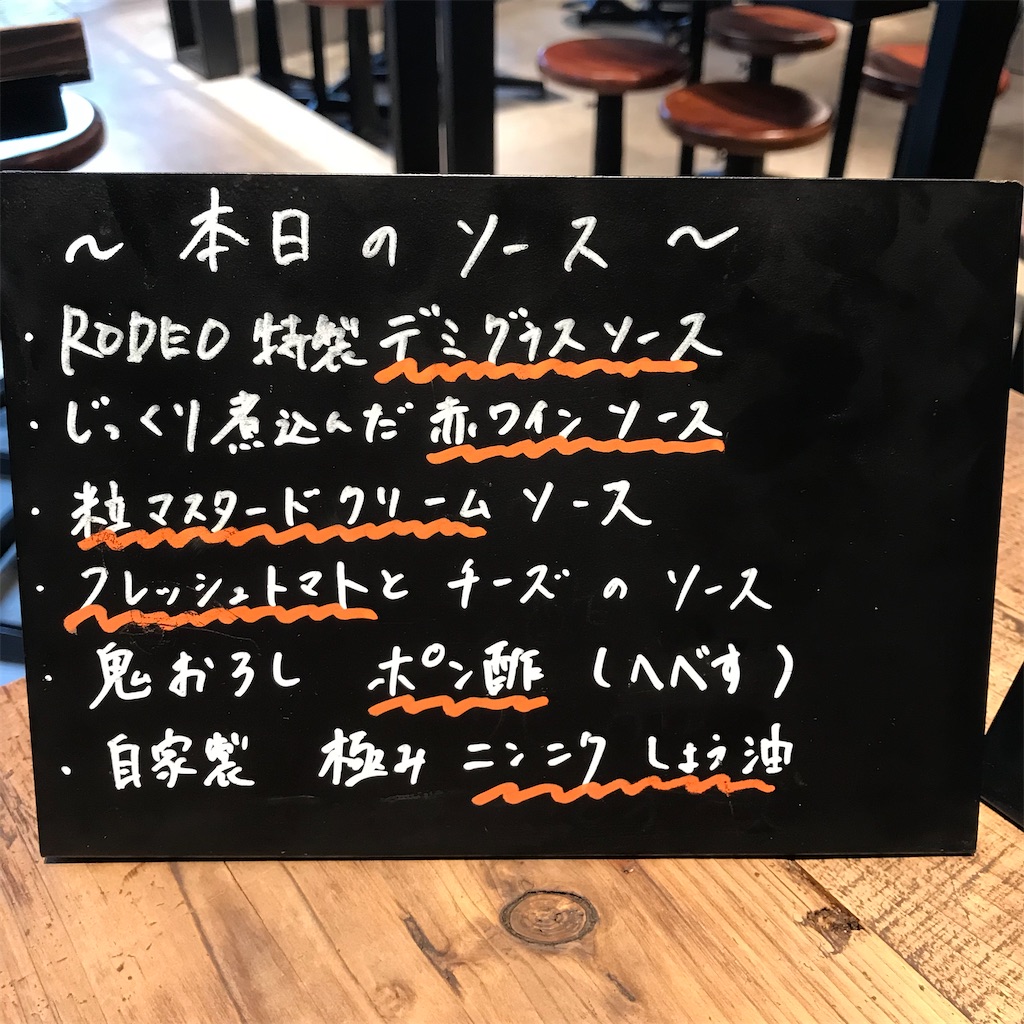 ～ 本日のソース ～
・RODEO 特製 デミグラスソース
・じっくり煮込んだ 赤ワインソース
・粒マスタードクリームソース
・フレッシュトマトと チーズ の ソース
・鬼おろし ポン酢 (へべす)
・自家製 極み ニンニク しょう油